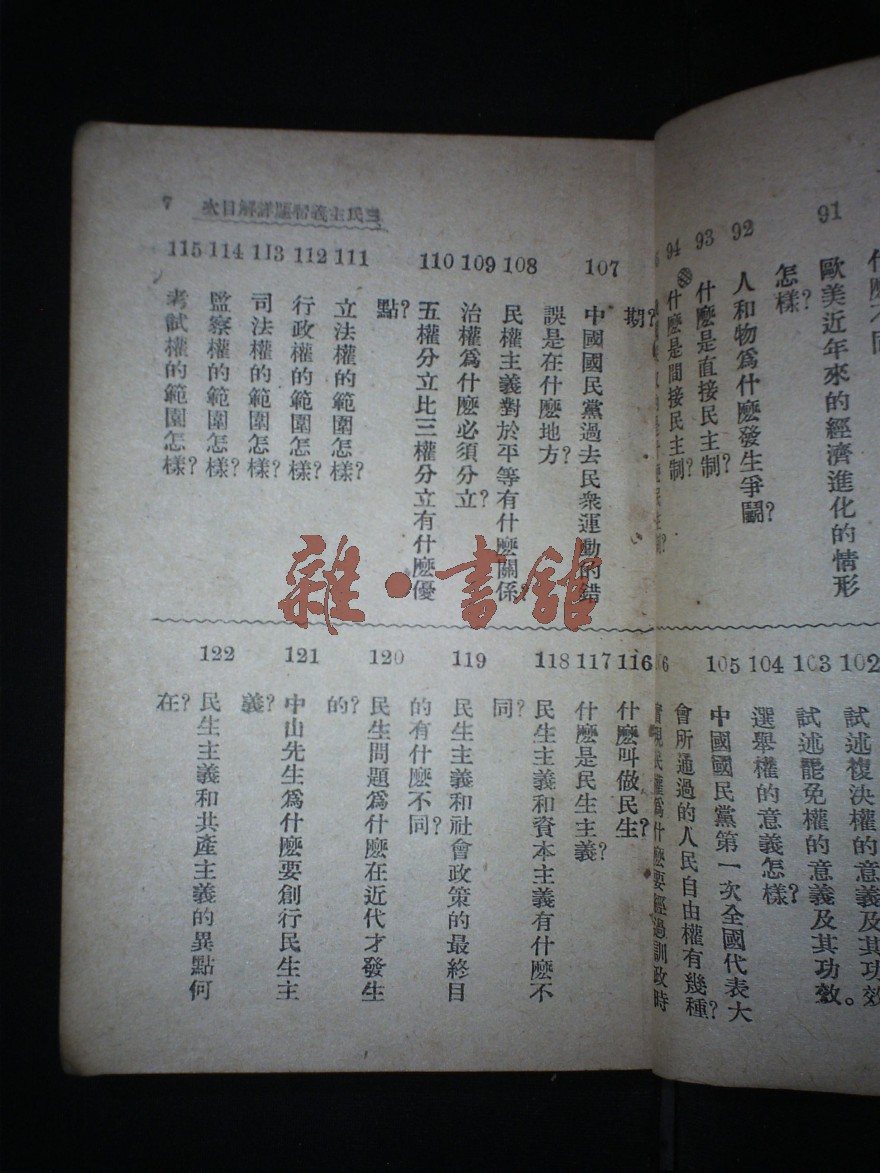 91 歐美近年來的經濟進化的情形
怎樣?
92 人和物爲什麽發生爭鬭?
93 什麽是直接民主制?
94 什麽是間接民主制?
102 試述複決權的意義及其功效
103 試述罷免權的意義及其功效。
104 選舉權的意義怎樣?
105 中國國民黨第一次全國代表大
會所通過的人民自由權有幾種?
實現民權爲什麽要經過訓政時
三民主義習題詳解目次 7
期?
107 中國國民黨過去民衆運動的錯
誤是在什麽地方?
108 民權主義對於平等有什麽關係?
109 治權爲什麽必須分立?
110 五權分立比三權分立有什麽優
點?
111 立法權的範圍怎樣?
112 行政權的範圍怎樣?
113 司法權的範圍怎樣?
114 監察權的範圍怎樣?
115 考試權的範圍怎樣?
116 什麽叫做民生?
117 什麽是民生主義?
118 民生主義和資本主義有什麽不
同?
119 民生主義和社會政策的最終目
的有什麽不同?
120 民生問題爲什麽在近代才發生
的?
121 中山先生爲什麽要創行民生主
義?
122 民生主義和共產主義的異點何
在?
雜·書館